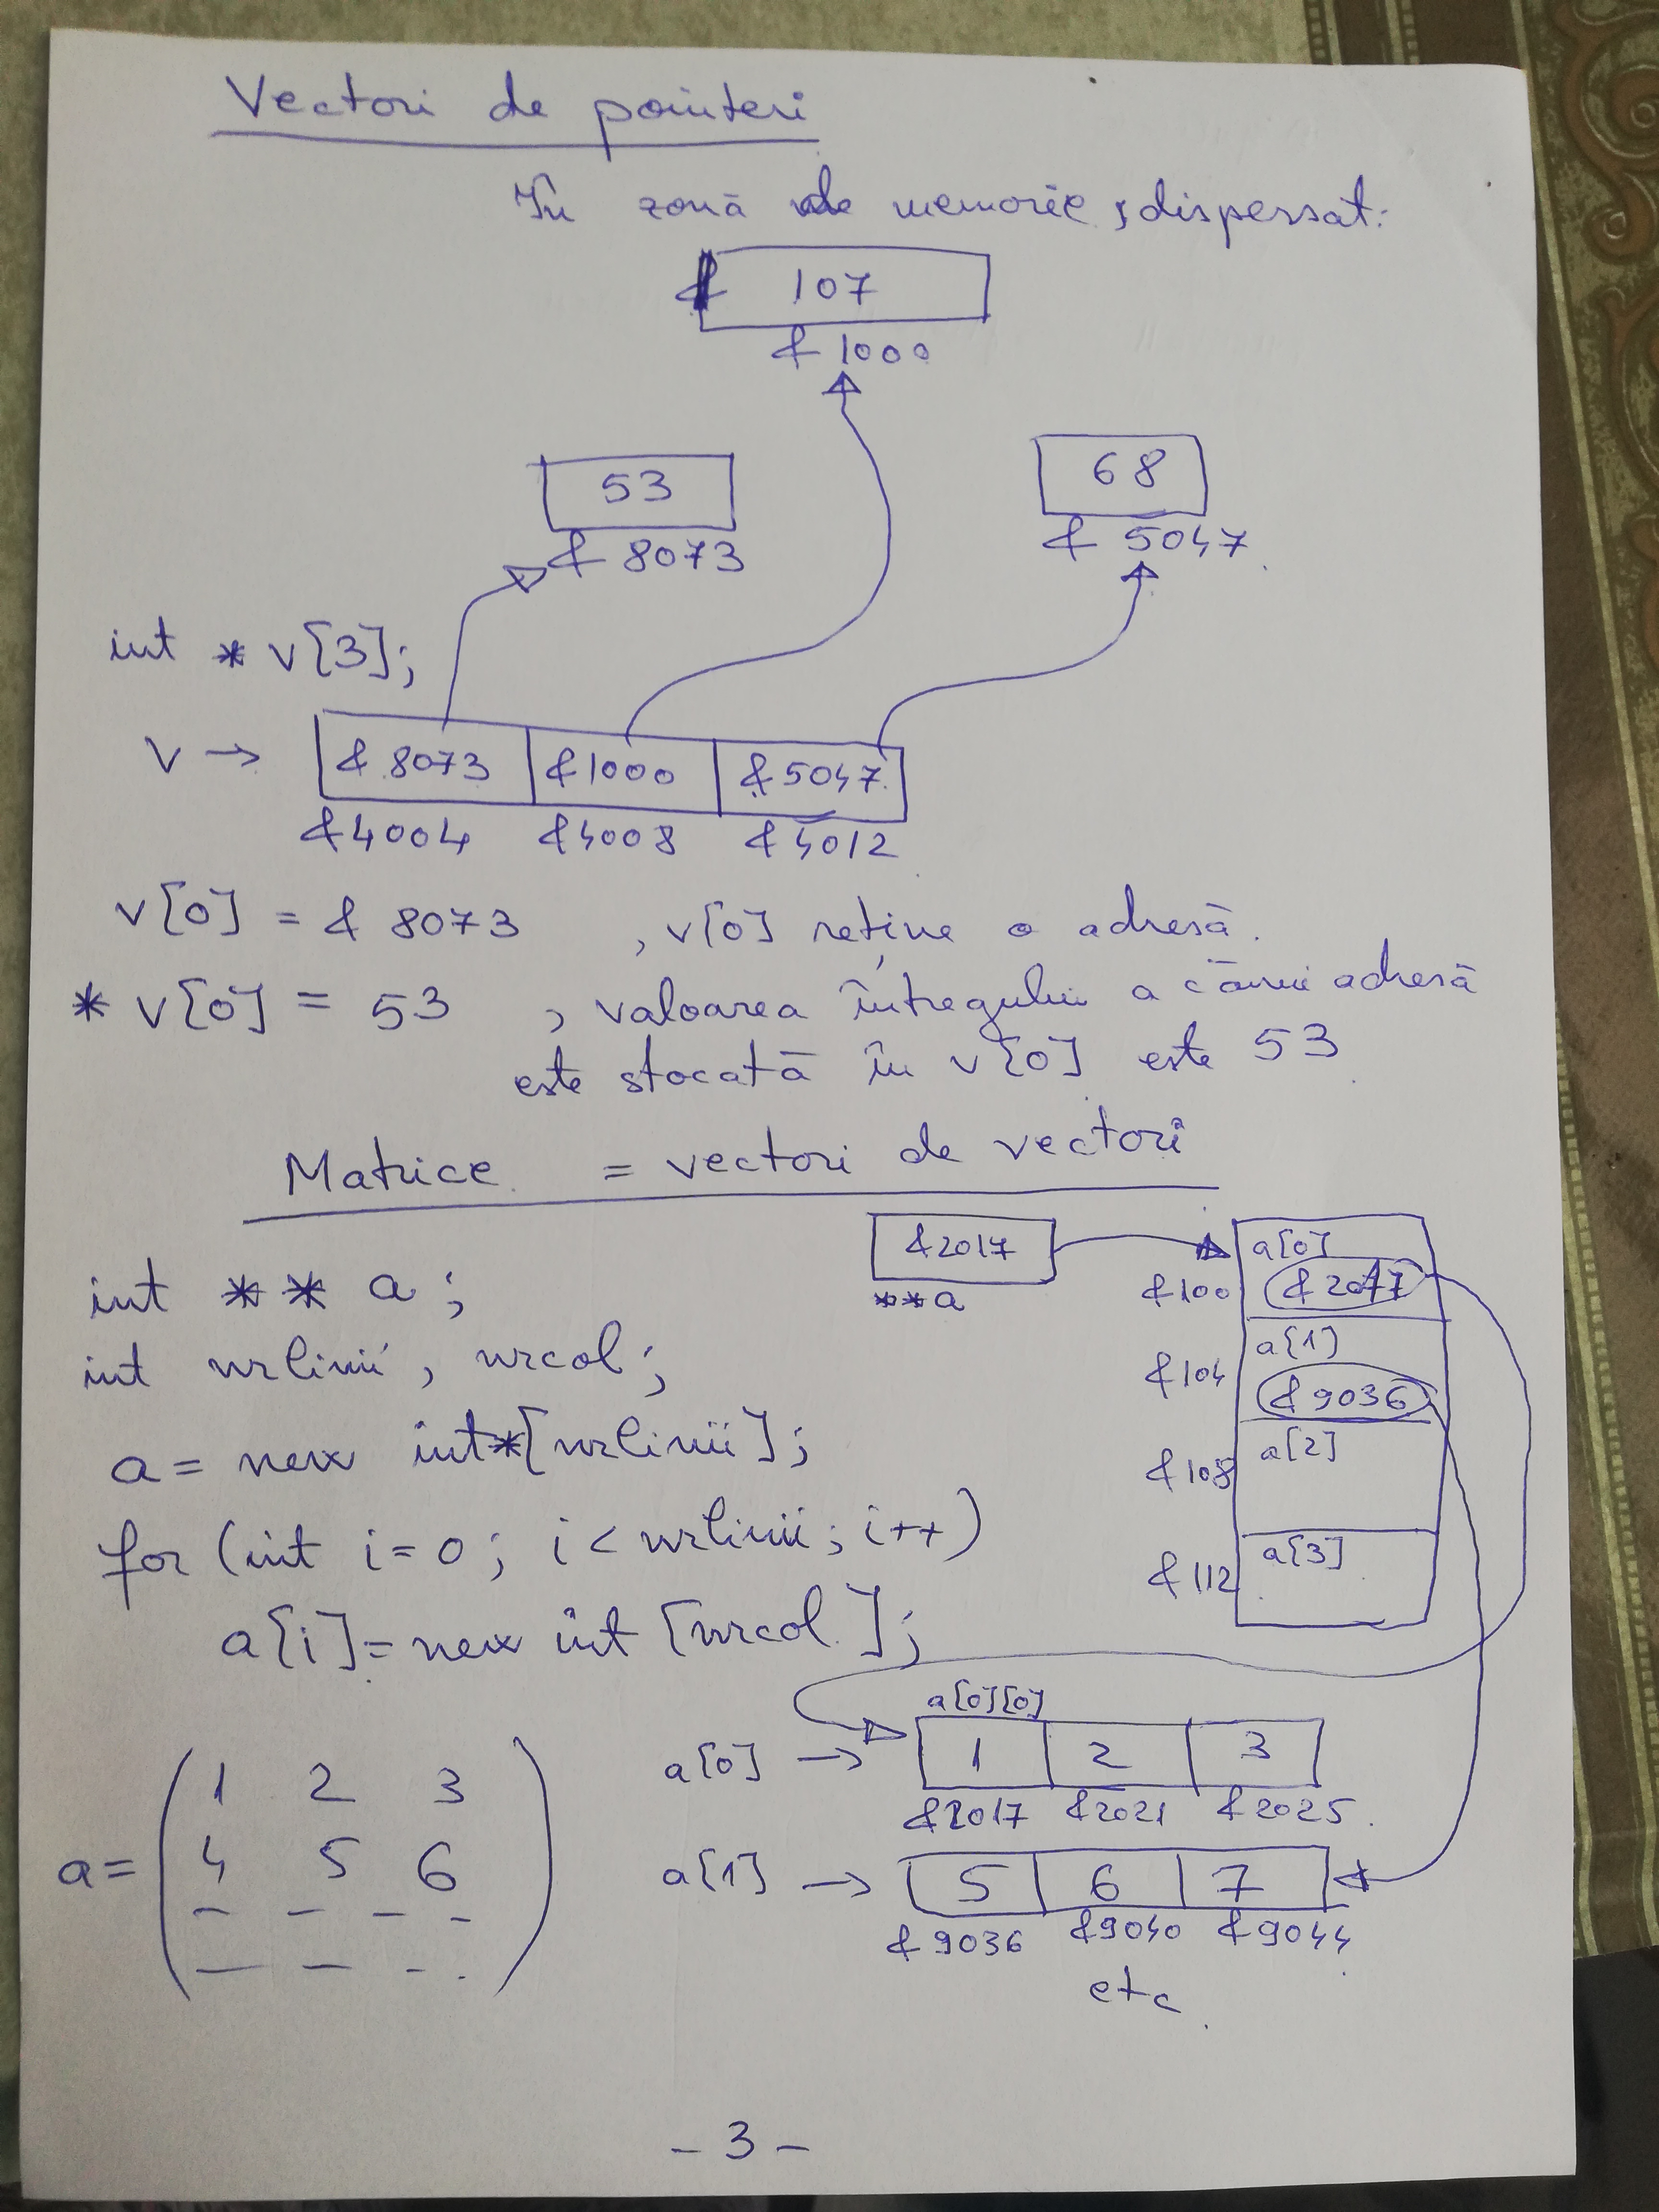 Vectori de pointeri
În zonă de memorie, dispersat:
107
&1000
53
68
&8073
&5047
int *v[3];
v → &8073 &1000 &5047
&4004 &4008 &4012
v[0] = &8073 , v[0] reține o adresă.
*v[0] = 53 , valoarea întregului a cărui adresă
este stocată în v[0] este 53
Matrice = vectori de vectori
&2017
**a
a[0]
&100 &2017
a[1]
&104 &9036
a[2]
&108
a[3]
&112
int ** a;
int nrlinii, nrcol;
a = new int*[nrlinii];
for (int i=0; i<nrlinii; i++)
a[i]=new int [nrcol];
a[0][0]
a[0] → 1 2 3
&2017 &2021 &2025
a[1] → 5 6 7
&9036 &9040 &9044
etc
1 2 3
a= 4 5 6
- - - -
- - - .
- 3 -